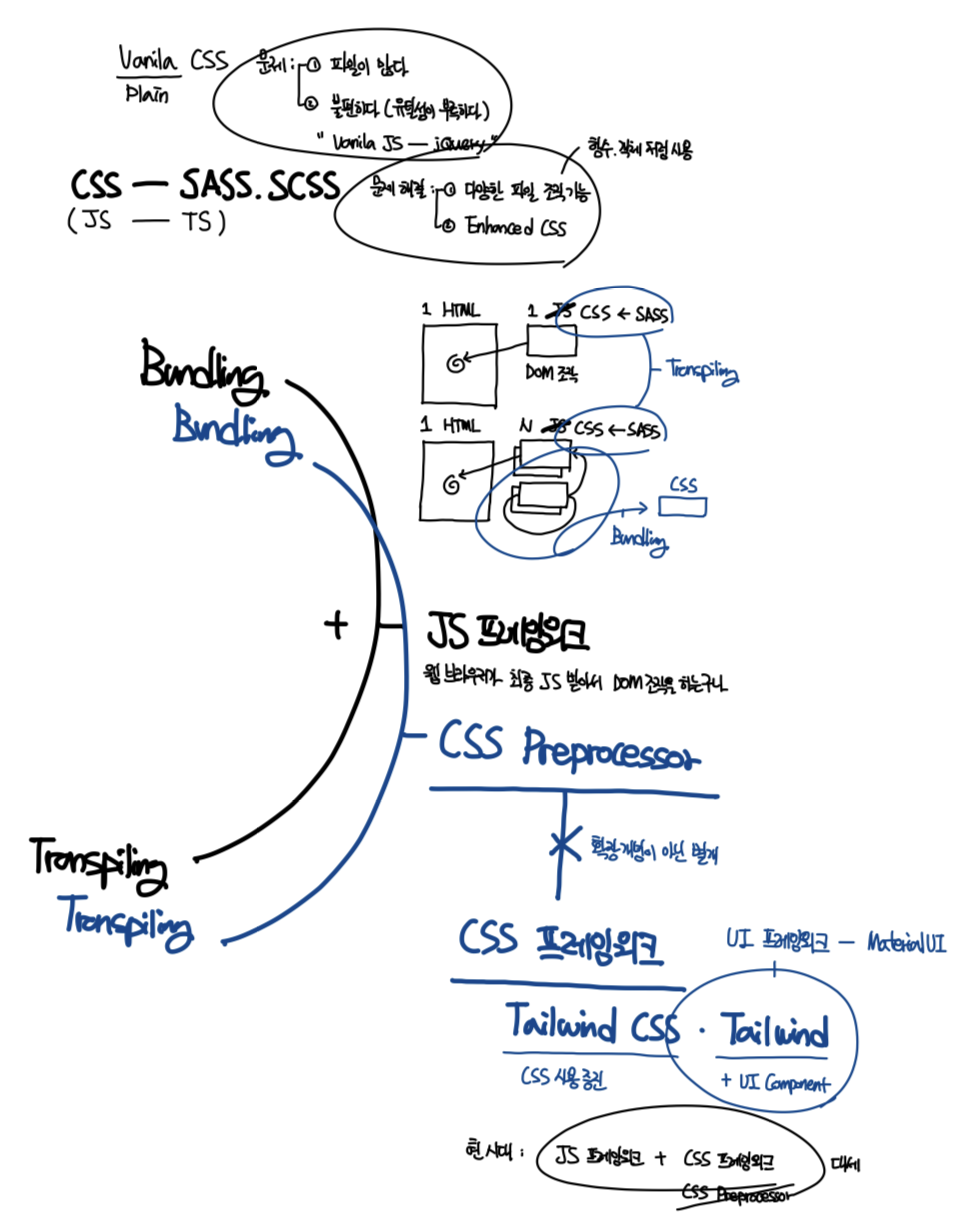 Vanila CSS
Plain
문제 : ① 파일이 많다
② 불편하다 (유틸성이 부족하다)
" Vanila JS — jQuery "
함수. 객체 처럼 사용
CSS — SASS.SCSS
(JS — TS)
문제 해결 : ① 다양한 파일 조작 기능
② Enhanced CSS
1 HTML
1 JS CSS ← SASS
DOM 조작
Transpiling
1 HTML
N JS CSS ← SASS
CSS
Bundling
Bundling
Bundling
+
JS 프레임워크
웹 브라우저가 최종 JS 받아서 DOM 조작을 하는구나
CSS Preprocessor
확장 개념이 아닌 별개
Transpiling
Transpiling
CSS 프레임워크
UI 프레임워크 — Material UI
Tailwind CSS . Tailwind
CSS 사용 증진
+ UI Component
현 시대 : JS 프레임워크 + CSS 프레임워크 대세
CSS Preprocessor